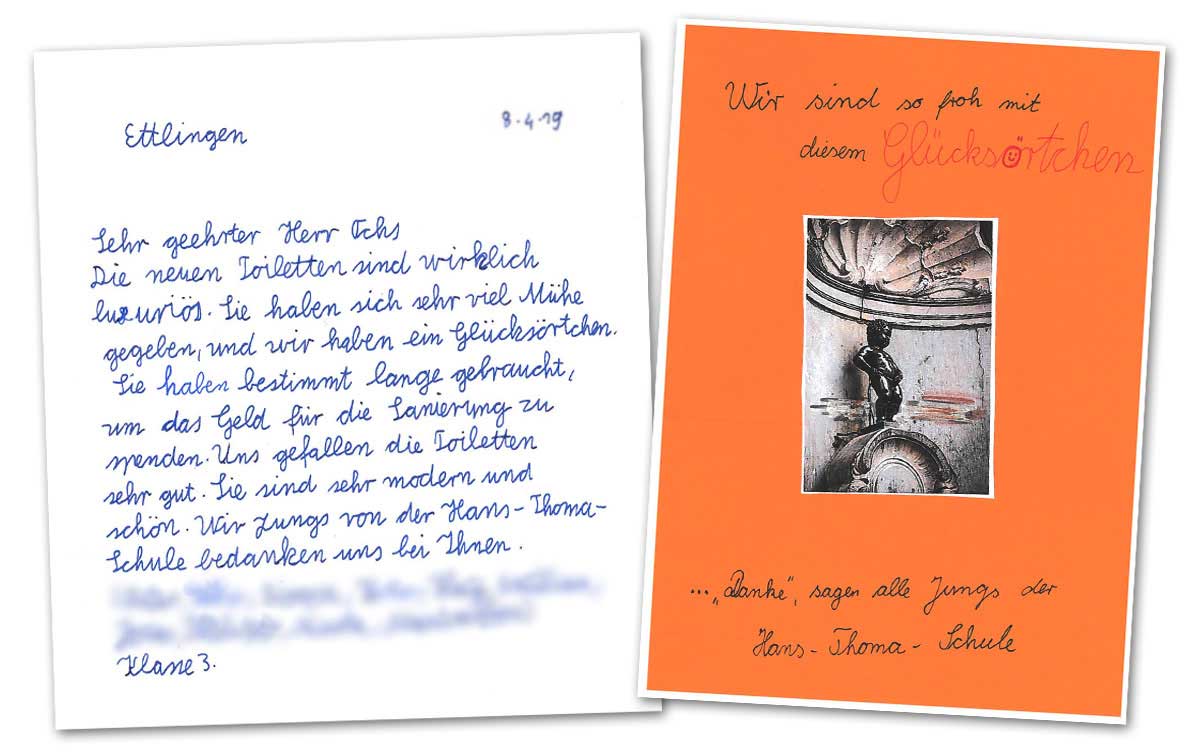 Ettlingen
8.4.19
Sehr geehrter Herr Ochs
Die neuen Toiletten sind wirklich
luxuriös. Sie haben sich sehr viel Mühe
gegeben, und wir haben ein Glücksörtchen.
Sie haben bestimmt lange gebraucht,
um das Geld für die Sanierung zu
spenden. Uns gefallen die Toiletten
sehr gut. Sie sind sehr modern und
schön. Wir Jungs von der Hans-Thoma-
Schule bedanken uns bei Ihnen.
Klasse 3.
Wir sind so froh mit
diesem Glücksörtchen
... „Danke“, sagen alle Jungs der
Hans-Thoma-Schule